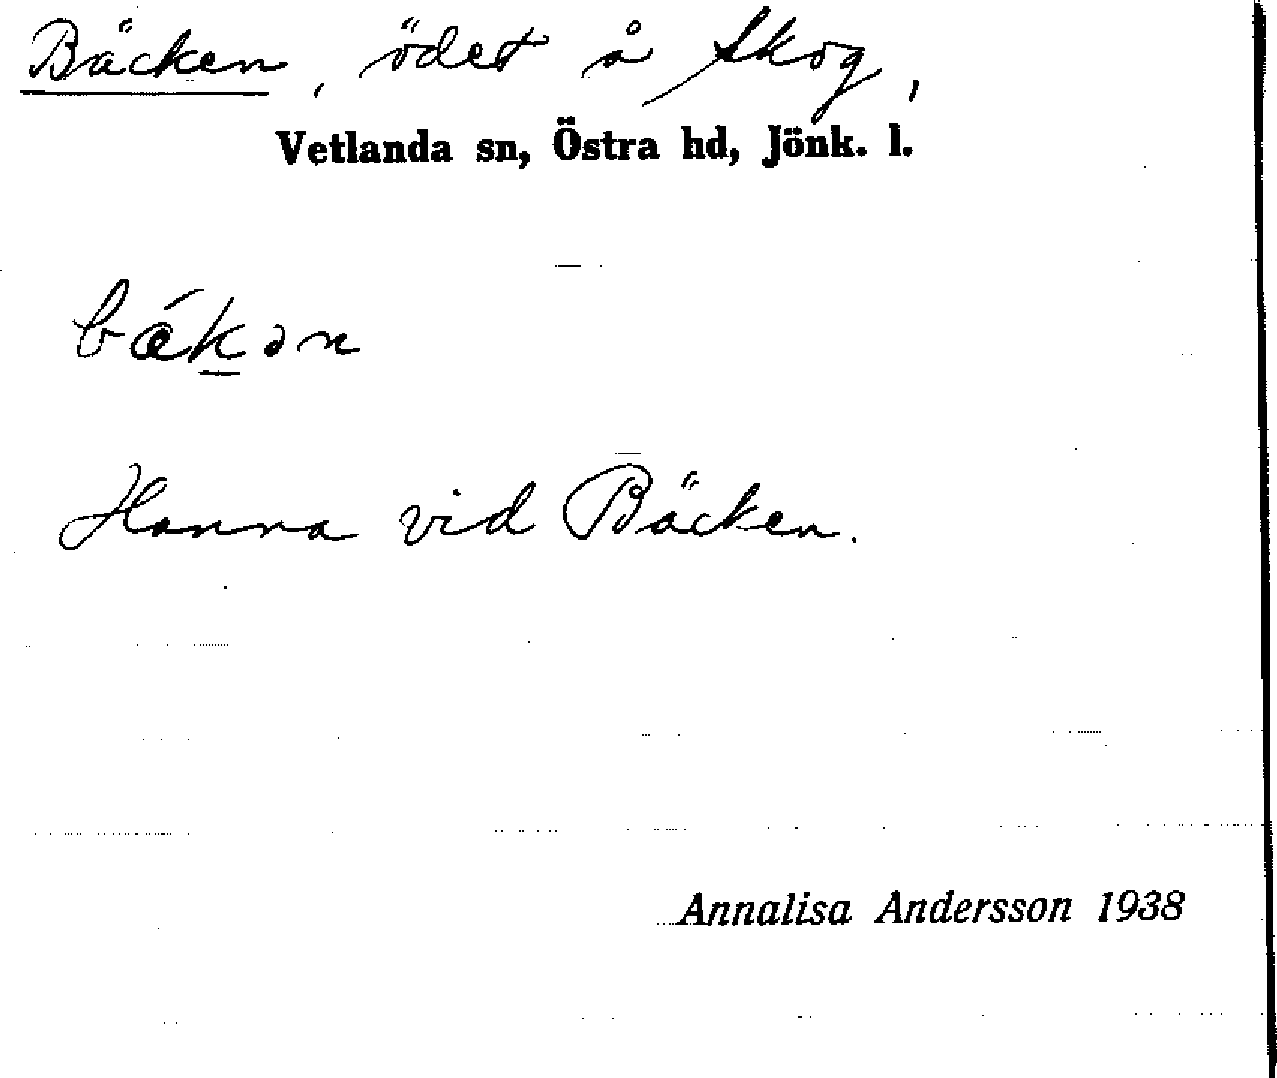 Bäcken, ödet å Skog,
Vetlanda sn, Östra hd, Jönk. l.
bǽk̲ən
Hanna vid Bäcken.
Annalisa Andersson 1938